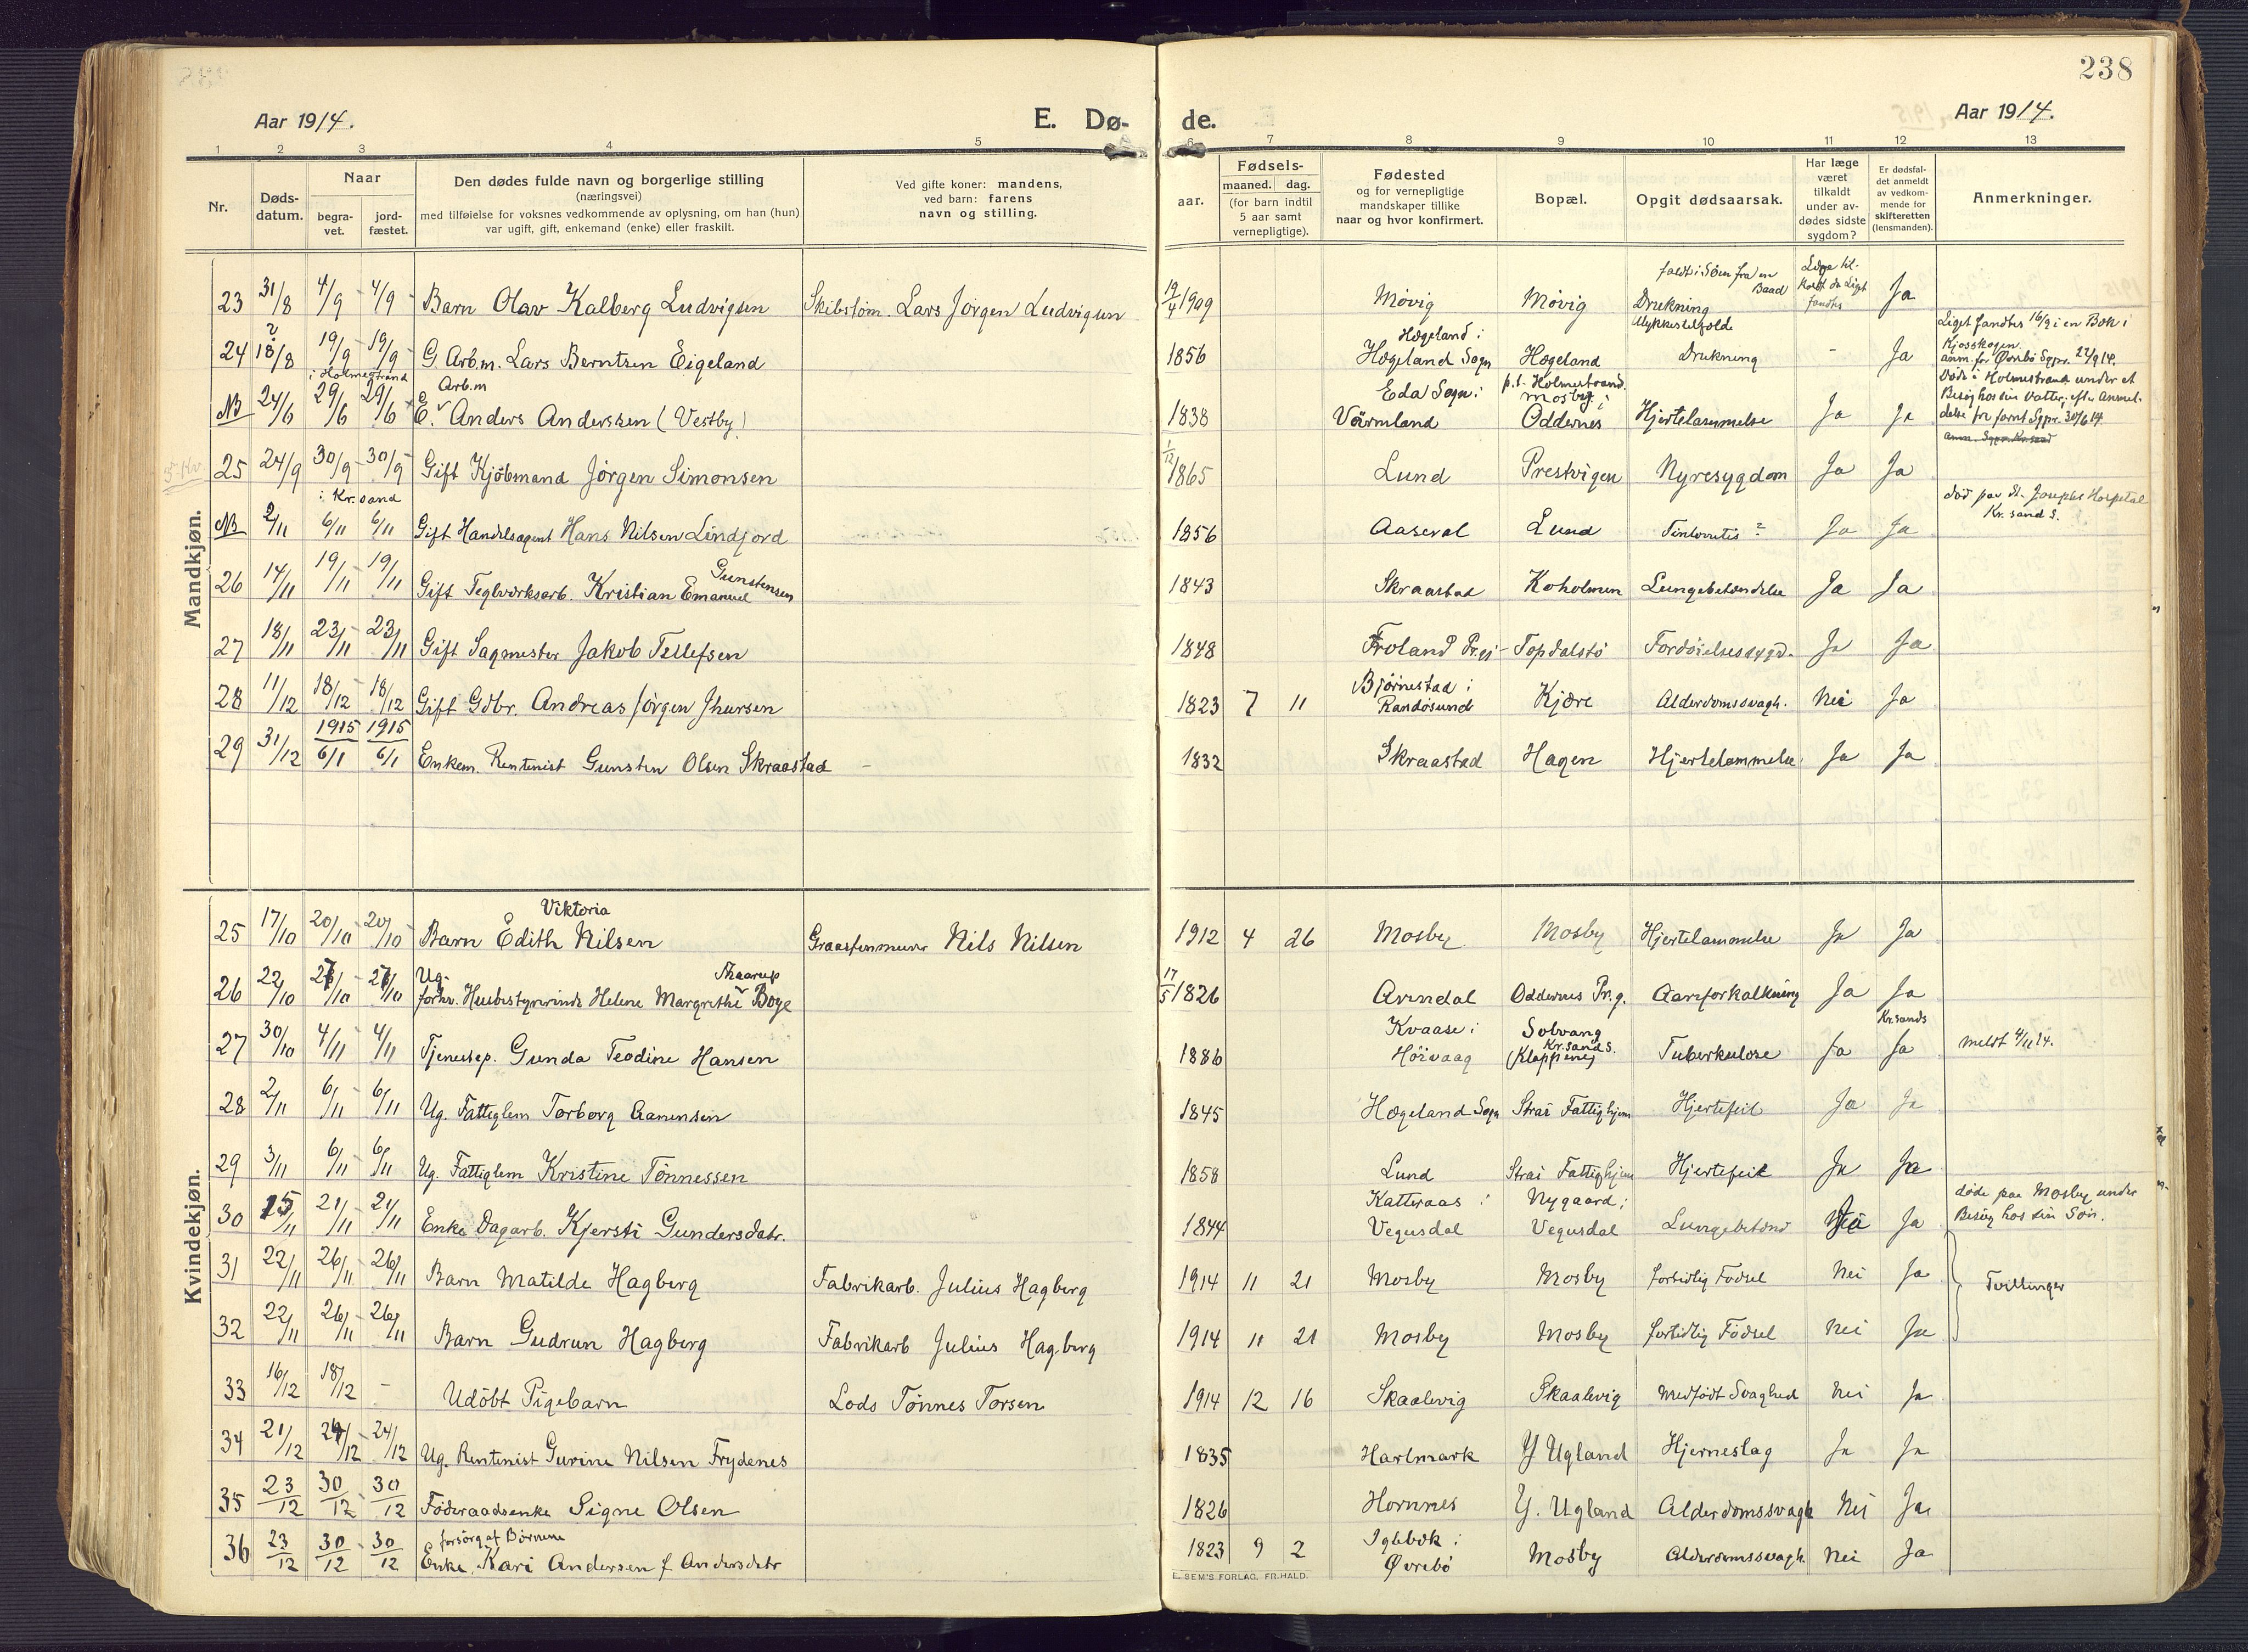 238
Aar 1914.
E. Dø-
de.
Aar 1914.
1 2 3 4 5 6 7 8 9 10 11 12 13
Nr.
Døds-
datum.
Naar
begra-
vet.
jord-
fæstet.
Den dødes fulde navn og borgerlige stilling
(næringsvei)
med tilføielse for voksnes vedkommende av oplysning, om han (hun)
var ugift, gift, enkemand (enke) eller fraskilt.
Ved gifte koner: mandens,
ved barn: farens
navn og stilling.
Fødsels-
aar.
maaned. dag.
(for barn indtil
5 aar samt
vernepligtige).
Fødested
og for vernepligtige
mandskaper tillike
naar og hvor konfirmert.
Bopæl.
Opgit dødsaarsak.
Har læge
været
tilkaldt
under av-
dødes sidste
sygdom?
Er dødsfal-
det anmeldt
av vedkom-
mende for
skifteretten
(lensmanden).
Anmerkninger.
Mandkjøn.
23 31/8 4/9 - 4/9 - Barn Olav Kalberg Ludvigsen Skibstøm. Lars Jørgen Ludvigsen 19/4 1909 Møvig Møvig faldt i Søen fra en Baad Drukning Ulykkestilfælde Læge til- Ja
24 18/8 ? 19/9 - 19/9 - G. Arb.m. Lars Berntsen Eigeland 1856 Hægeland i Hægeland Sogn Hægeland Drukning - Ja Liget fandtes 16/9 i en Bæk i Kjosskogen. anm. for Øvrebø Sgpr. 22/9 14.
NB 24/6 i Holmestrand 29/6 29/6 E. Arb.m Anders Anderssen (Vestby) 1838 Eda Sogn i Värmland p.t. Holmestrand. Mosby i Oddernes Hjertelammelse Ja Ja Døde i Holmestrand under et Besøg hos sin Datter, efter Anmeldelse fra førnt Sgpr. 30/6 14.
25 24/9 30/9 - 30/9 Gift Kjøbmand Jørgen Simonsen 1/12 1865 Lund Prestvigen Nyresygdom Ja Ja
NB 2/11 i Kr.sand 6/11 6/11 Gift Handelsagent Hans Nilsen Lindjord 1856 Aaseral Lund Ja Ja død paa St. Josephs Hospital Kr.sand S.
26 14/11 19/11 - 19/11 Gift Teglværksarb. Kristian Emanuel Gunstensen 1843 Skraastad Koholmen Lungebetændelse Ja Ja
27 18/11 23/11 - 23/11 Gift Sagmester Jakob Tellefsen 1848 Froland Pr.gj. Topdalstø Fordøielsessygd. Ja Ja
28 11/12 18/12 - 18/12 Gift Gdbr. Andreas Jørgen Jhursen 1823 7 11 Bjørnestad i Randøsund Kjære Alderdomssvagh. Nei Ja
29 31/12 1915 6/1 1915 6/1 Enkem. Rentenist Gunsten Olsen Skraastad - 1832 Skraastad Hagen Hjertelammelse Ja Ja
Kvindekjøn.
25 17/10 20/10 - 20/10 Barn Edith Viktoria Nilsen Graastenmurer Nils Nilsen 1912 4 26 Mosby Mosby Hjertelammelse Ja Ja
26 22/10 27/10 - 27/10 Ug. forhv. Husbestyrerinde Helene Margrethe Skaarup Boye 17/5 1826 Arendal Oddernes Pr.g. Aareforkalkning Ja Ja
27 30/10 4/11 4/11 Tjenestep. Gunda Teodine Hansen 1886 Kvaase i Høivaag Solvang Kr.sand S. (Klappene) Tuberkulose Ja Ja Kr.sands meldt 4/11 14.
28 2/11 6/11 - 6/11 Ug. Fattiglem Torborg Aanensen 1845 Hægeland Sogn Strai Fattighjem Hjertefeil Ja Ja
29 3/11 6/11 - 6/11 Ug. Fattiglem Kristine Tønnessen 1858 Lund Strai Fattighjem Hjertefeil Ja Ja
30 15/11 21/11 21/11 Enke Dagarb. Kjersti Gundersdatr. 1844 Katteraas i Vegusdal Nygaard i Vegusdal Lungebetænd Ja Ja døde paa Mosby under Besøg hos sin Søn.
31 22/11 26/11 - 26/11 Barn Matilde Hagberg Fabrikarb. Julius Hagberg 1914 11 21 Mosby Mosby fortidlig Fødsel Nei Ja Tvillinger
32 22/11 26/11 - 26/11 Barn Gudrun Hagberg Fabrikarb Julius Hagberg 1914 11 21 Mosby Mosby fortidlig Fødsel Nei Ja
33 16/12 18/12 - Udøbt Pigebarn Lods Tønnes Torsen 1914 12 16 Skaalevig Skaalevig Medfødt Svaghed Nei Ja
34 21/12 24/12 - 24/12 Ug. Rentenist Gurine Nilsen Frydenes 1835 Harkmark Y Ugland Hjerneslag Ja Ja
35 23/12 30/12 - 30/12 Føderaadsenke Signe Olsen 1826 Hornnes Y. Ugland Alderdomssvagh Nei Ja
36 23/12 30/12 - 30/12 forsørg. af Børnene Enke, Kari Andersen f. Andersdatr 1823 9 2 Iglebæk i Øvrebø Mosby Alderdomssvagh. Nei Ja
E. SEM'S FORLAG, FR.HALD.